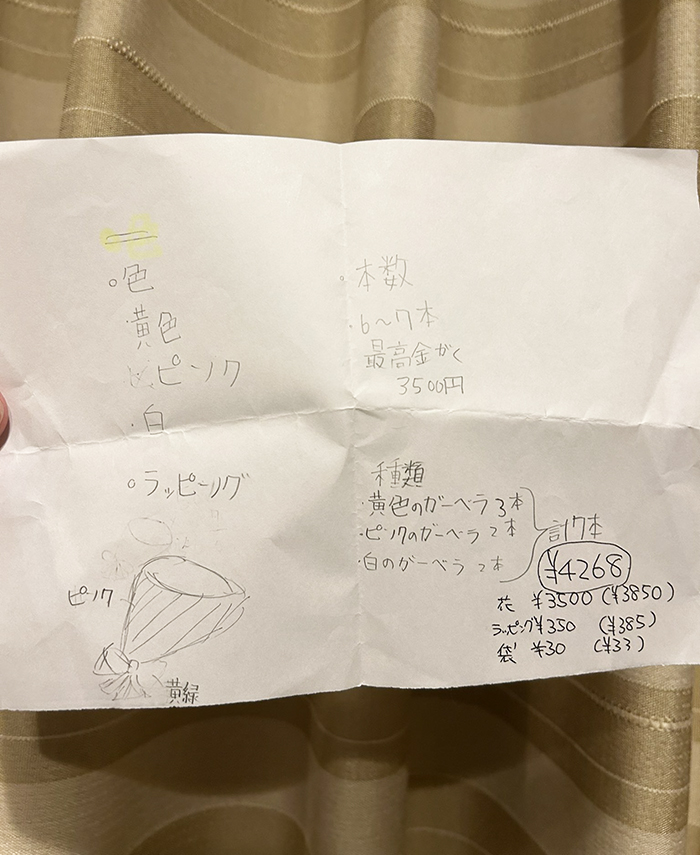 ○色
黄色
ピンク
・白
○ラッピング
ピンク
黄緑
○本数
・6〜7本
最高金がく
3500円
種類
・黄色のガーベラ 3本
・ピンクのガーベラ 2本
・白のガーベラ 2本
計7本
¥4268
花 ¥3500 (¥3850)
ラッピング ¥350 (¥385)
袋 ¥30 (¥33)